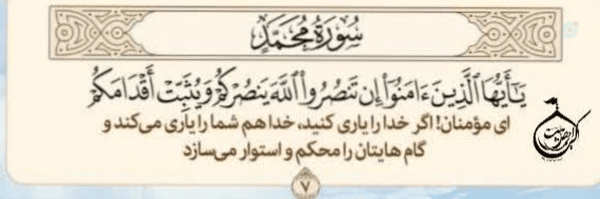 سُورَةُ مُحَمَّدٍ
يَـٰٓأَيُّهَا ٱلَّذِينَ ءَامَنُوٓا۟ إِن تَنصُرُوا۟ ٱللَّهَ يَنصُرْكُمْ وَيُثَبِّتْ أَقْدَامَكُمْ
ای مؤمنان! اگر خدا را یاری کنید، خدا هم شما را یاری می‌کند و
گام هایتان را محکم و استوار می‌سازد
۷